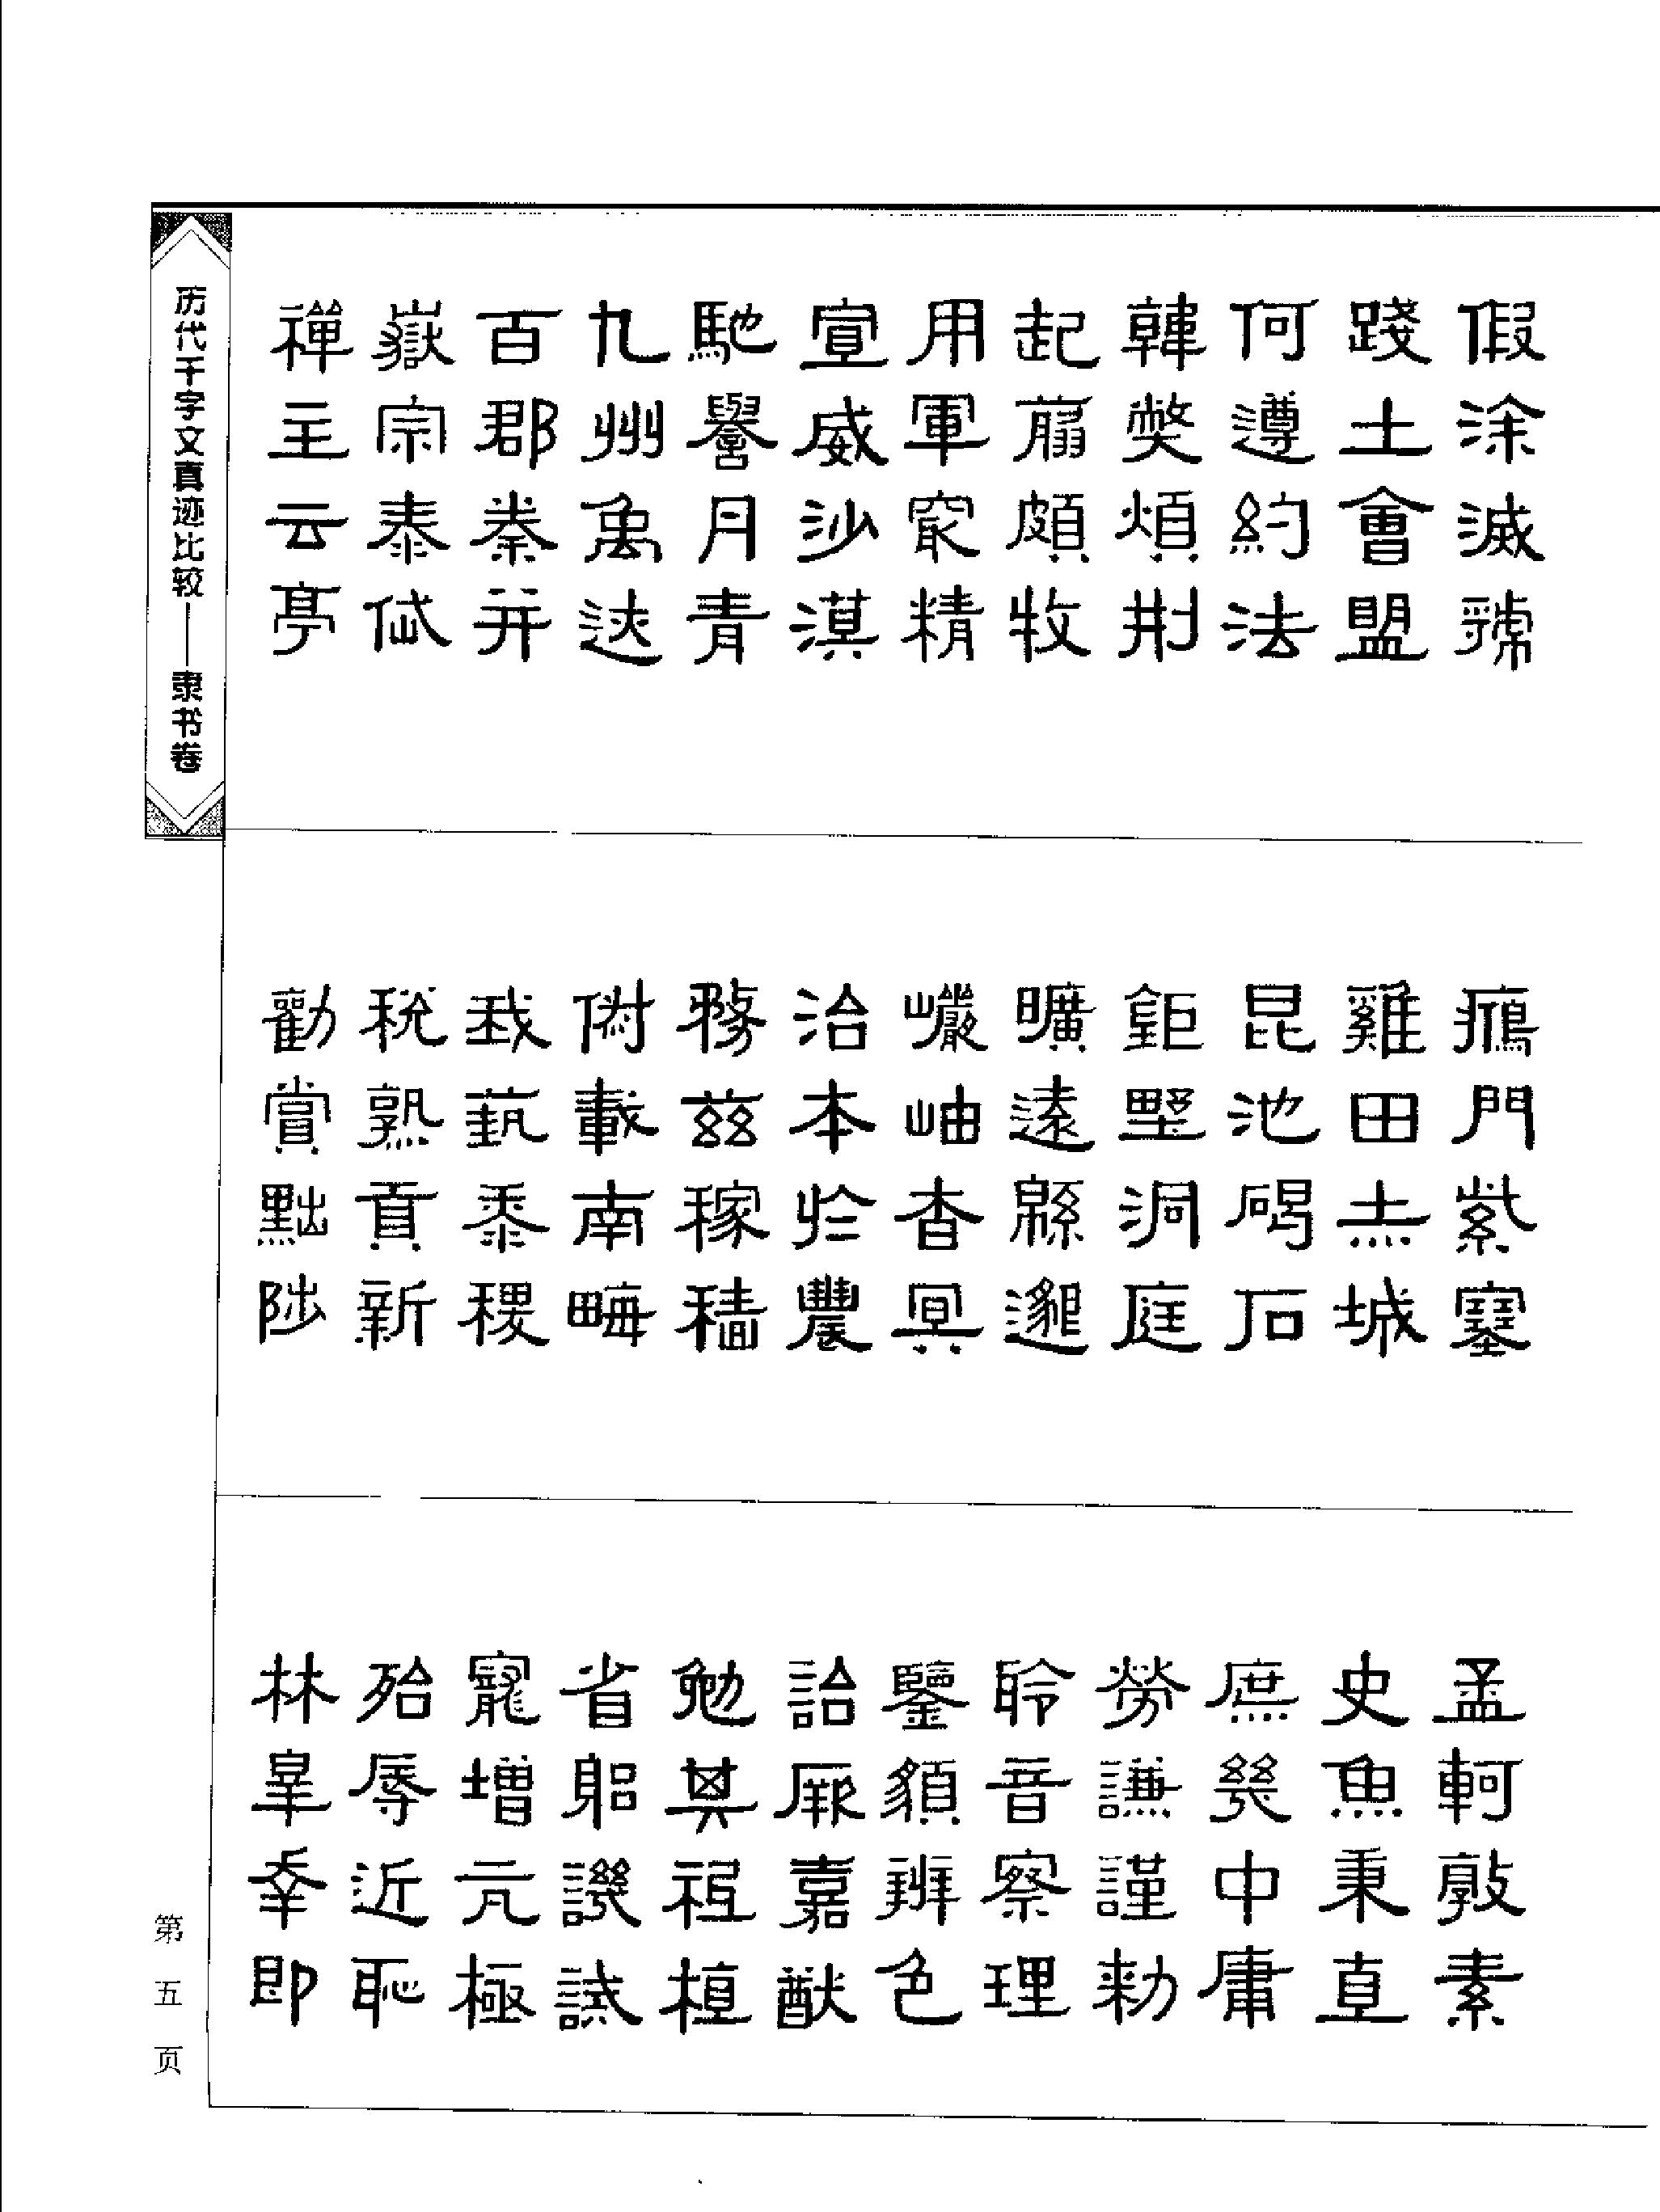 假涂滅虢
踐土會盟
何遵約法
韓獘煩刑
起翦頗牧
用軍冣精
宣威沙漠
馳譽丹青
九州禹迹
百郡秦并
嶽宗泰岱
禪主云亭
鴈門紫塞
雞田赤城
昆池碣石
鉅野洞庭
曠遠緜邈
巖岫杳冥
治本於農
務茲稼穡
俶載南畮
我藝黍稷
稅熟貢新
勸賞黜陟
孟軻敦素
史魚秉直
庶幾中庸
勞謙謹勅
聆音察理
鑒貌辨色
詒厥嘉猷
勉其祗植
省躬譏誡
寵增亢極
殆辱近恥
林皋幸即
历代千字文真迹比较——隶书卷
第五页